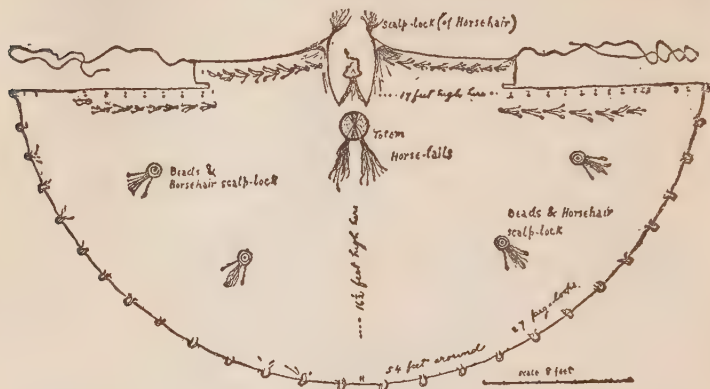 scalp-lock (of Horsehair)
17 feet high here
Totem
Horse-tails
Beads &
Horsehair scalp-lock
Beads & Horsehair
scalp-lock
16½ feet high here
27 peg-loops.
54 feet around
scale 8 feet